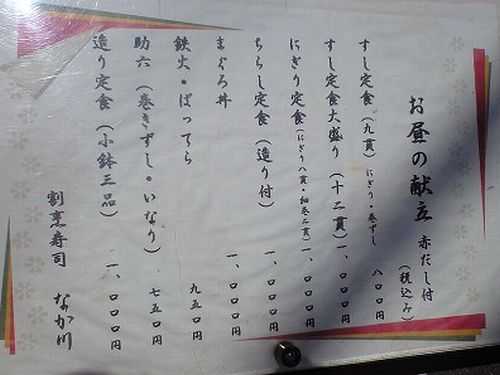 お昼の献立 赤だし付(税込み)
すし定食(九貫)にぎり・巻ずし 八〇〇円
すし定食大盛り(十二貫)一、〇〇〇円
にぎり定食(にぎり八貫・細巻二貫)一、〇〇〇円
ちらし定食(造り付)一、〇〇〇円
まぐろ丼 一、〇〇〇円
鉄火・ばってら 九五〇円
助六(巻きずし・いなり)七五〇円
造り定食(小鉢三品)一、〇〇〇円
割烹寿司 なか川